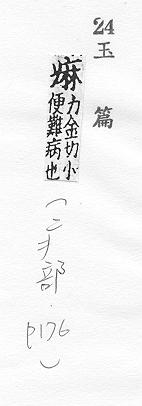 24
玉篇
痳力金切小
便難病也
（疒部．
p176）